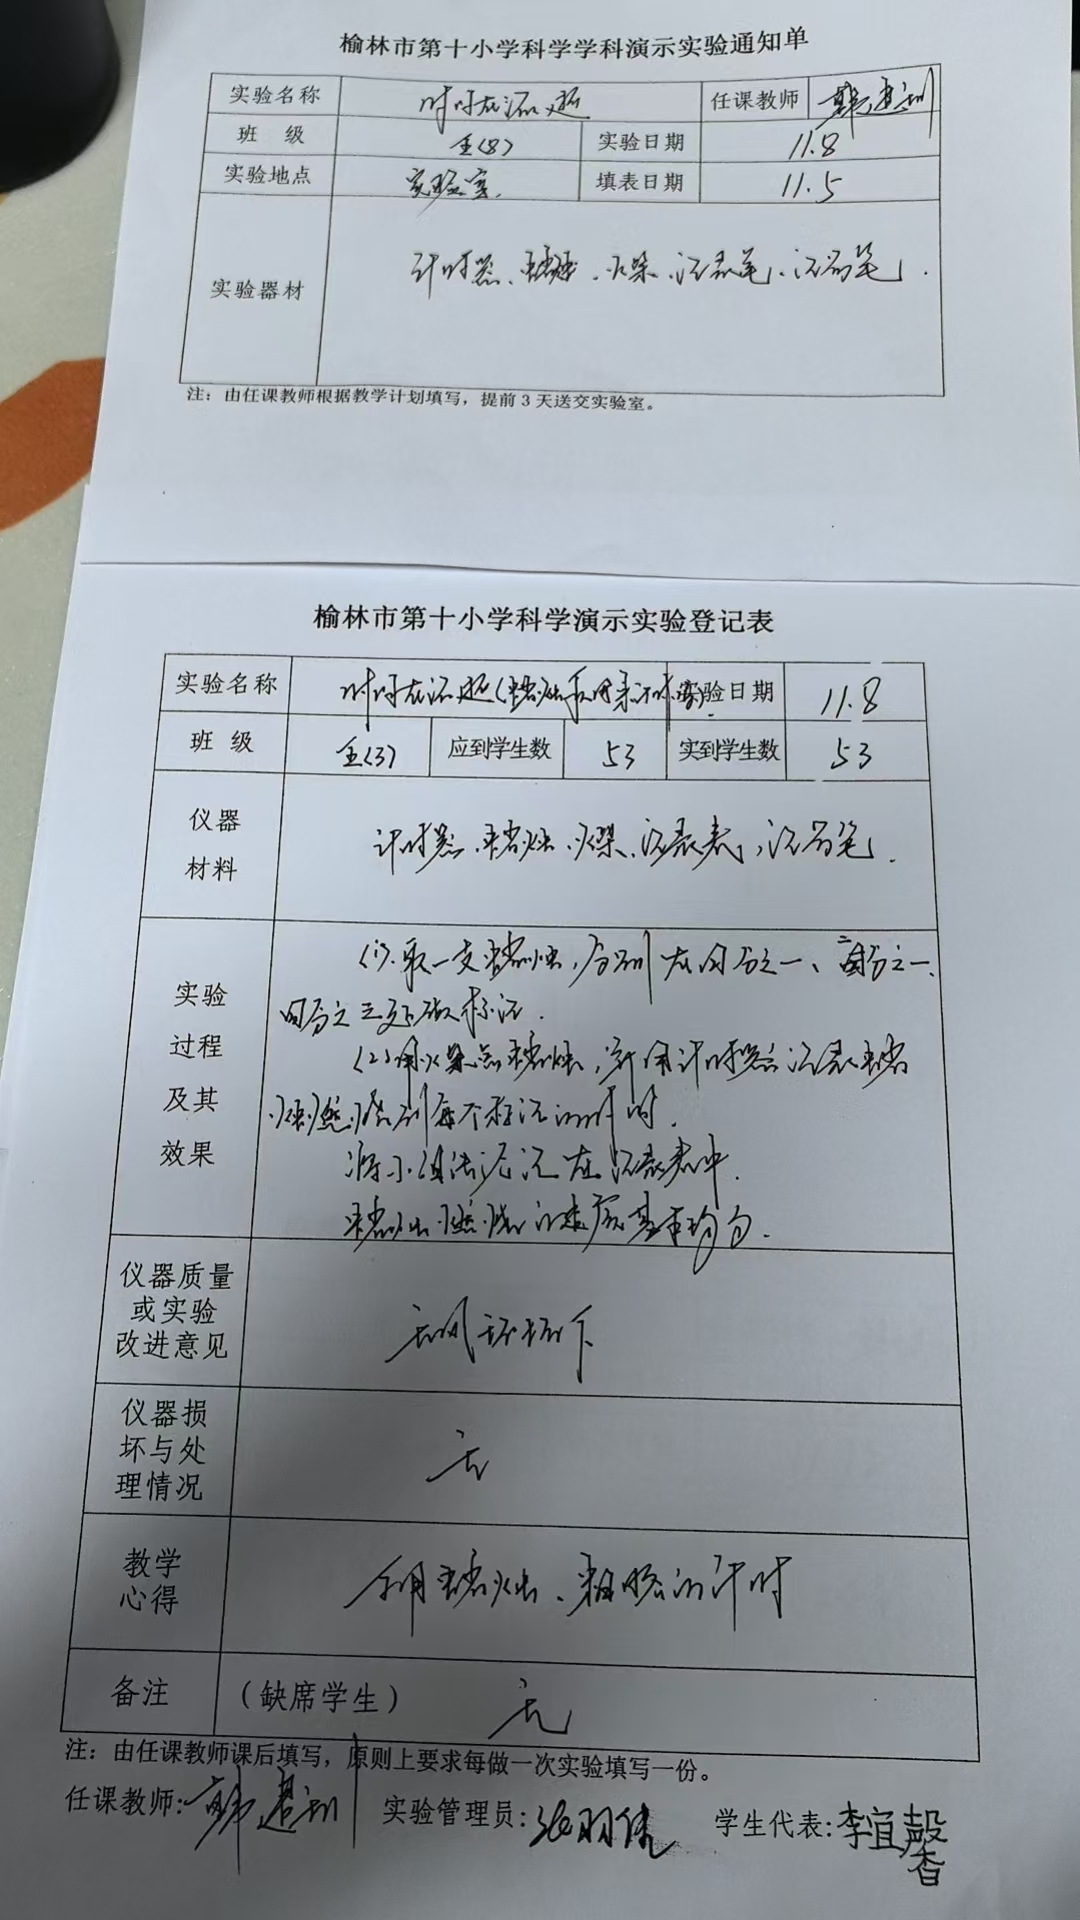 榆林市第十小学科学学科演示实验通知单
实验名称 时间在流逝 任课教师
班 级 五(8) 实验日期 11.8
实验地点 实验室. 填表日期 11.5
实验器材 计时器、蜡烛、火柴、记录笔、记号笔.
注：由任课教师根据教学计划填写，提前3天送交实验室。
榆林市第十小学科学演示实验登记表
实验名称 时间在流逝(蜡烛 实验日期 11.8
班 级 五(3) 应到学生数 53 实到学生数 53
仪器
材料
计时器、蜡烛、火柴、记录表，记号笔.
实验
过程
及其
效果
(1).取一支蜡烛，分别在四分之一、二分之一、
四分之三处做标记.
(2)用火柴点蜡烛，并用计时器记录蜡
烛燃烧到每个标记的时间.
在记录表中.
蜡烛燃烧的速度基本均匀.
仪器质量
或实验
改进意见
无风环境下
仪器损
坏与处
理情况
无
教学
心得
利用蜡烛、粗略的计时
备注 (缺席学生) 无
注：由任课教师课后填写，原则上要求每做一次实验填写一份。
任课教师: 实验管理员: 学生代表:李宜馨